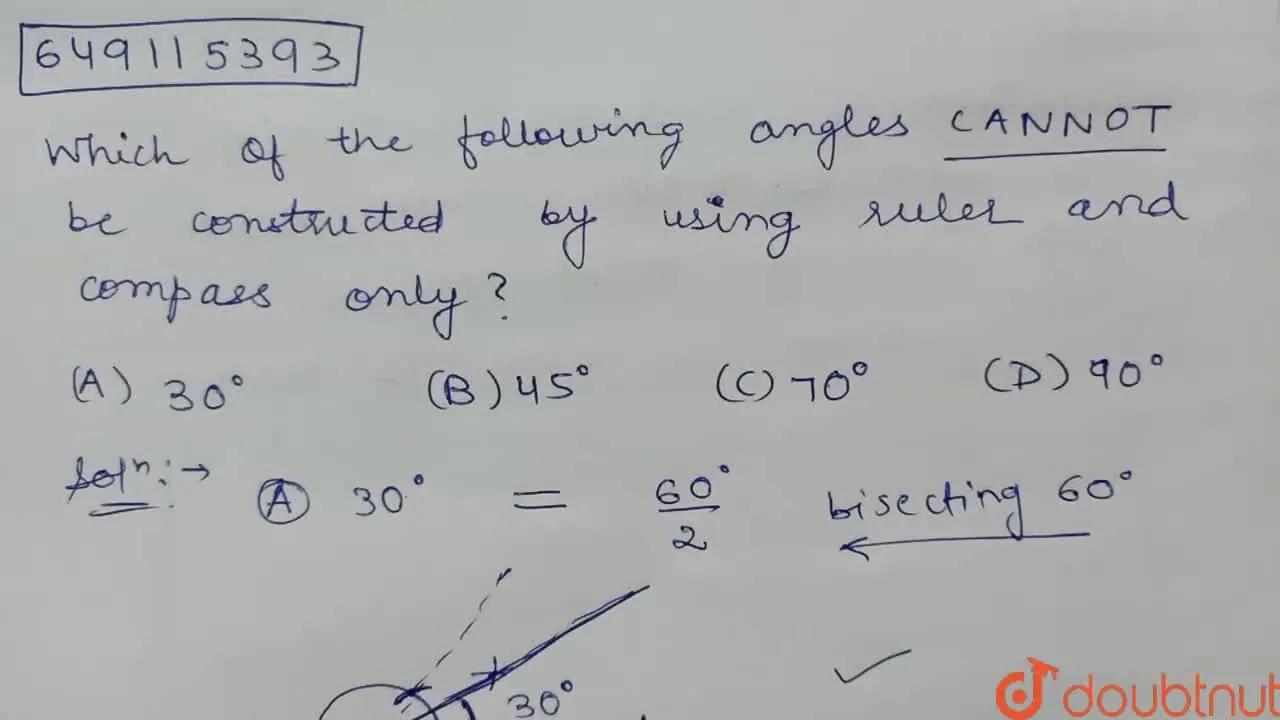 649115393
Which of the following angles CANNOT
be constructed by using ruler and
compass only?
(A) 30° (B) 45° (C) 70° (D) 90°
Solⁿ:→ (A) 30° = 60°/2 bisecting 60°
30°
doubtnut